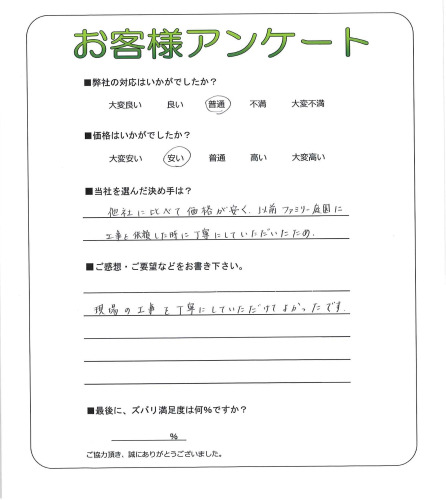 お客様アンケート
■弊社の対応はいかがでしたか？
大変良い 良い 普通 不満 大変不満
■価格はいかがでしたか？
大変安い 安い 普通 高い 大変高い
■当社を選んだ決め手は？
他社に比べて価格が安く、以前ファミリー庭園に
工事を依頼した時に丁寧にしていただいたため。
■ご感想・ご要望などをお書き下さい。
現場の工事を丁寧にしていただけてよかったです。
■最後に、ズバリ満足度は何％ですか？
％
ご協力頂き、誠にありがとうございました。